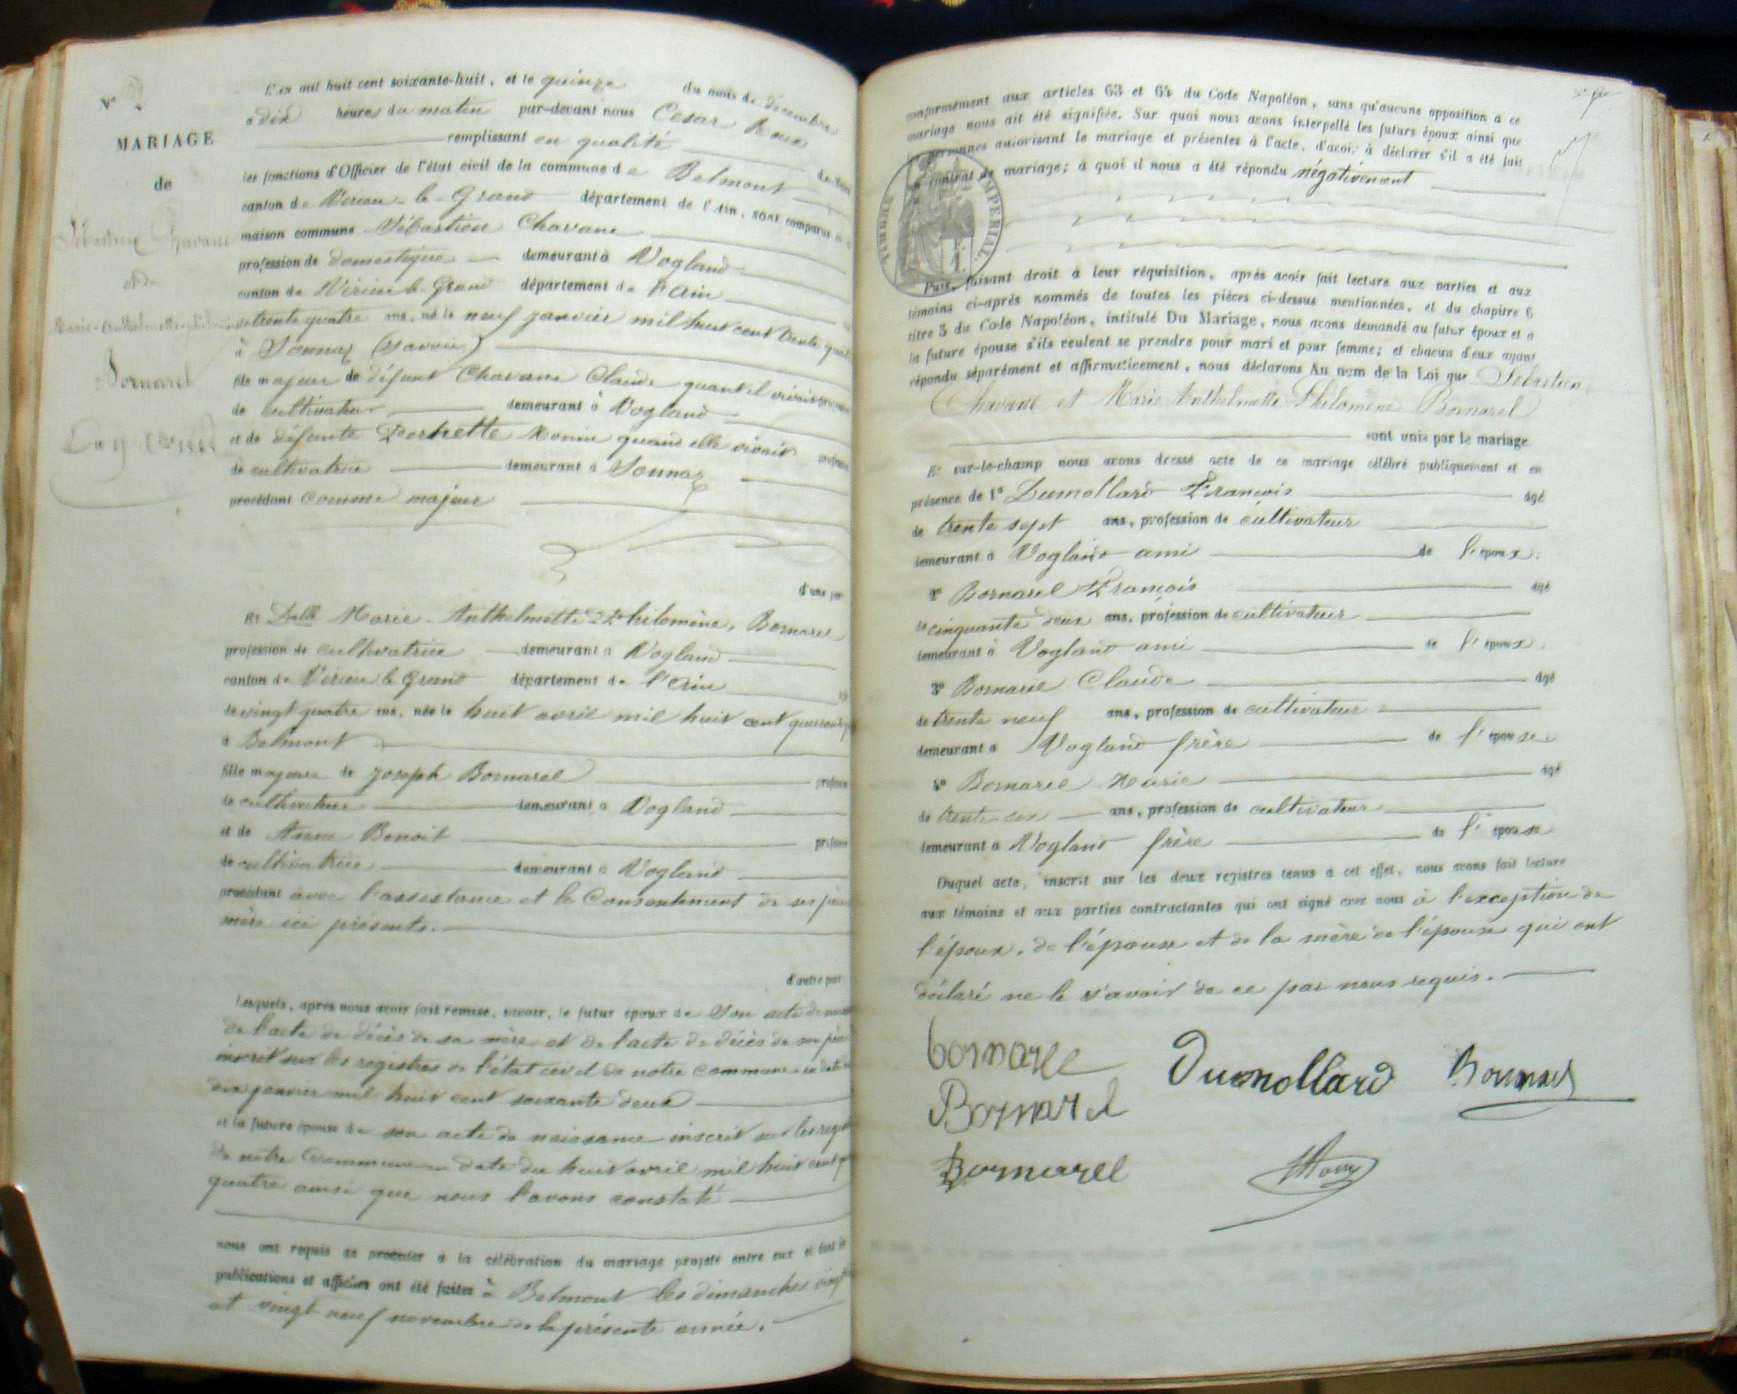 N° 2
MARIAGE
de
Sébastien Chavane
et de
Bornarel
L'an mil huit cent soixante-huit, et le quinze du mois de décembre
à dix heures du matin par-devant nous César Roux
remplissant en qualité
les fonctions d'Officier de l'état civil de la commune de Belmont
canton de Virieu-le-Grand département de l'Ain, sont comparus
maison commune Sébastien Chavane
profession de domestique demeurant à Vogland
canton de Virieu le Grand département de l'Ain
de trente quatre ans, né le neuf janvier mil huit cent trente quatre
à Sonnaz (Savoie)
fils majeur de défunt Chavane Claude quand il vivait
de cultivateur demeurant à Vogland
et de défunte Pernette Monin quand elle vivait profession
de cultivatrice demeurant à Sonnaz
procédant comme majeur
d'une part
Et Delle Marie-Anthelmette Philomène, Bornarel
profession de cultivatrice demeurant à Vogland
canton de Virieu le Grand département de l'Ain
de vingt quatre ans, née le huit avril mil huit cent quarante
à Belmont
fille majeure de Joseph Bornarel profession
de cultivateur demeurant à Vogland
et de Anne Benoit profession
de cultivatrice demeurant à Vogland
procédant avec l'assistance et le Consentement de ses père
mère ici présents.
d'autre part
Lesquels, après nous avoir fait remise, savoir, le futur époux de son acte de
de l'acte de décès de sa mère et de l'acte de décès de son père
inscrit sur les registres de l'état civil de notre commune en date
dix janvier mil huit cent soixante deux
et la future épouse de son acte de naissance inscrit sur les
de notre Commune en date du huit avril mil huit cent
quatre ainsi que nous l'avons constaté
nous ont requis de procéder à la célébration du mariage projeté entre eux et dont les
publications et affiches ont été faites à Belmont les dimanches vingt
et vingt neuf novembre de la présente année.
conformément aux articles 63 et 64 du Code Napoléon, sans qu'aucune opposition à ce
mariage nous ait été signifiée. Sur quoi nous avons interpellé les futurs époux ainsi que
personnes autorisant le mariage et présentes à l'acte, d'avoir à déclarer s'il a été fait
contrat de mariage; à quoi il nous a été répondu négativement
TIMBRE IMPERIAL
Puis, faisant droit à leur réquisition, après avoir fait lecture aux parties et aux
témoins ci-après nommés de toutes les pièces ci-dessus mentionnées, et du chapitre 6
titre 5 du Code Napoléon, intitulé Du Mariage, nous avons demandé au futur époux et à
la future épouse s'ils veulent se prendre pour mari et pour femme; et chacun d'eux ayant
répondu séparément et affirmativement, nous déclarons Au nom de la Loi que Sébastien
Chavane et Marie Anthelmette Philomène Bornarel
sont unis par le mariage
Et sur-le-champ nous avons dressé acte de ce mariage célébré publiquement et en
présence de 1° Dumollard François âgé
de trente sept ans, profession de cultivateur
demeurant à Vogland ami de l'époux.
2° Bornarel François âgé
de cinquante deux ans, profession de cultivateur
demeurant à Vogland ami de l'époux.
3° Bornarel Claude âgé
de trente neuf ans, profession de cultivateur
demeurant à Vogland frère de l'épouse
4° Bornarel Marie âgé
de trente six ans, profession de cultivateur
demeurant à Vogland frère de l'épouse
Duquel acte, inscrit sur les deux registres tenus à cet effet, nous avons fait lecture
aux témoins et aux parties contractantes qui ont signé avec nous à l'exception de
l'époux, de l'épouse et de la mère de l'épouse qui ont
déclaré ne le savoir de ce par nous requis.
bornarel Dumollard Bornarel
Bornarel
Bornarel Roux